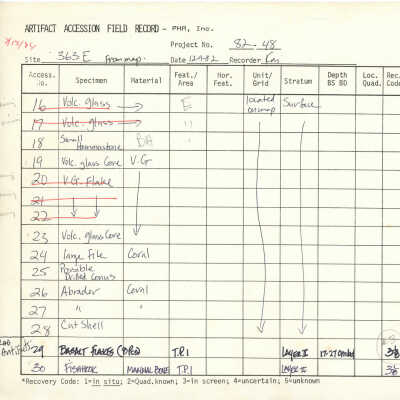 ARTIFACT ACCESSION FIELD RECORD - PHR, Inc.
Project No. 82-48
Site 363E From map Date 12-9-82 Recorder
Access. No. Specimen Material Feat./Area Hor. Feat. Unit/Grid Stratum Depth BS BD Loc. Quad. Rec. Code
16 Volc. glass → E located on map Surface
17 Volc. glass → "
18 Small Hammerstone BA "
19 Volc. glass Core V.G
20 V.G. Flake
21
22
23 Volc. glass Core
24 Large File Coral
25 Possible Dr.lled Conus
26 Abrader Coral
27 " "
28 Cut Shell
29 BASALT FLAKES T.P.1 LAYER II
30 FISHHOOK MAMMAL BONE T.P.1 LAYER II
*Recovery Code: 1=in situ; 2=Quad.known; 3=in screen; 4=uncertain; 5=unknown